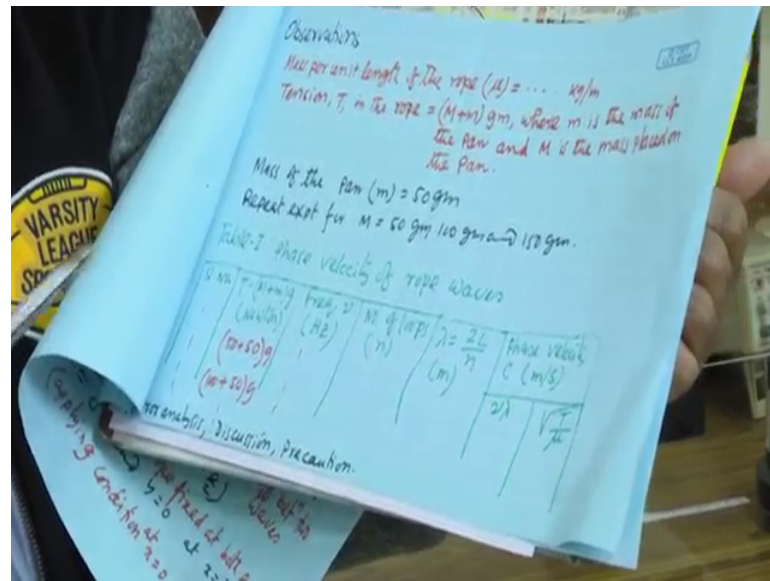 Observations
Mass per unit length of the rope (μ) = .... kg/m
Tension, T, in the rope = (M+m) gm, where m is the mass of
the pan and M is the mass placed on
the pan.
Mass of the pan (m) = 50 gm
Repeat expt for M = 50 gm 100 gm and 150 gm.
Table-I Phase velocity of rope waves
Sl No. T=(M+m)g Freq ν No of loops λ = 2L/n Phase velocity
(Newton) (Hz) (n) (m) C (m/s)
(50+50)g
νλ √T/μ
(100+50)g
Error analysis, Discussion, Precaution.
VARSITY
LEAGUE
(applying condition at
fixed at both
y=0 at x=
waves
x=0